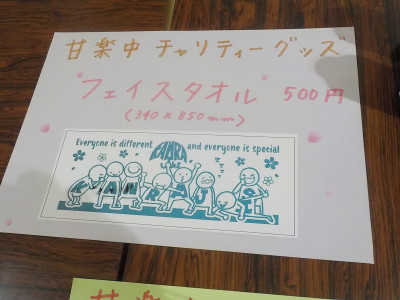 甘楽中 チャリティーグッズ
"フェイスタオル" 500円
(340×850mm)
Everyone is different and everyone is special
KANRAJH
甘楽